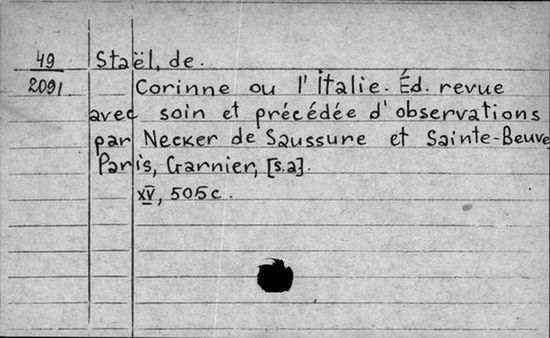 49 Staël, de.
2091 Corinne ou l'Italie. Éd. revue
avec soin et précédée d'observations
par Necker de Saussure et Sainte-Beuve
Paris, Garnier, [s.a].
XV, 505c.